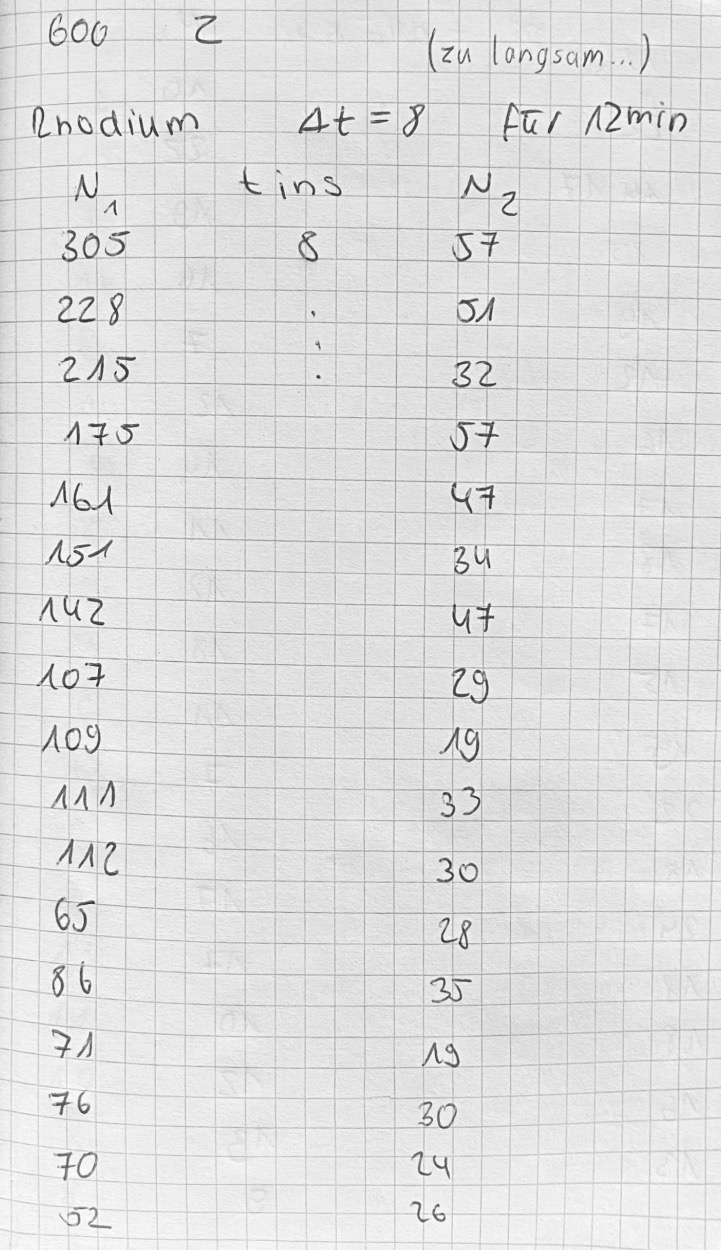 600 2 (zu langsam...)
Rhodium Δt = 8 für 12min
N₁ t in s N₂
305 8 57
228 . 51
215 : 32
175 57
161 47
151 34
142 47
107 29
109 19
111 33
112 30
65 28
86 35
71 19
76 30
70 24
52 26